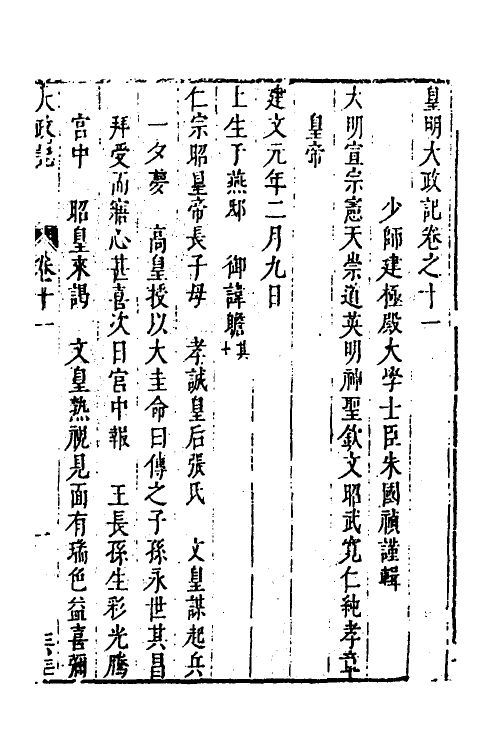 皇明大政記卷之十一
少師建極殿大學士臣朱國禎謹輯
大明宣宗憲天崇道英明神聖欽文昭武寬仁純孝章
皇帝
建文元年二月九日
上生于燕邸　御諱瞻其十
仁宗昭皇帝長子母　孝誠皇后張氏　文皇謀起兵
一夕夢　高皇授以大圭命曰傳之子孫永世其昌
拜受而寤心甚喜次日宮中報　王長孫生彩光騰
宮中　昭皇來謁　文皇熟視見面有瑞色益喜彌
大政記　卷十一　一